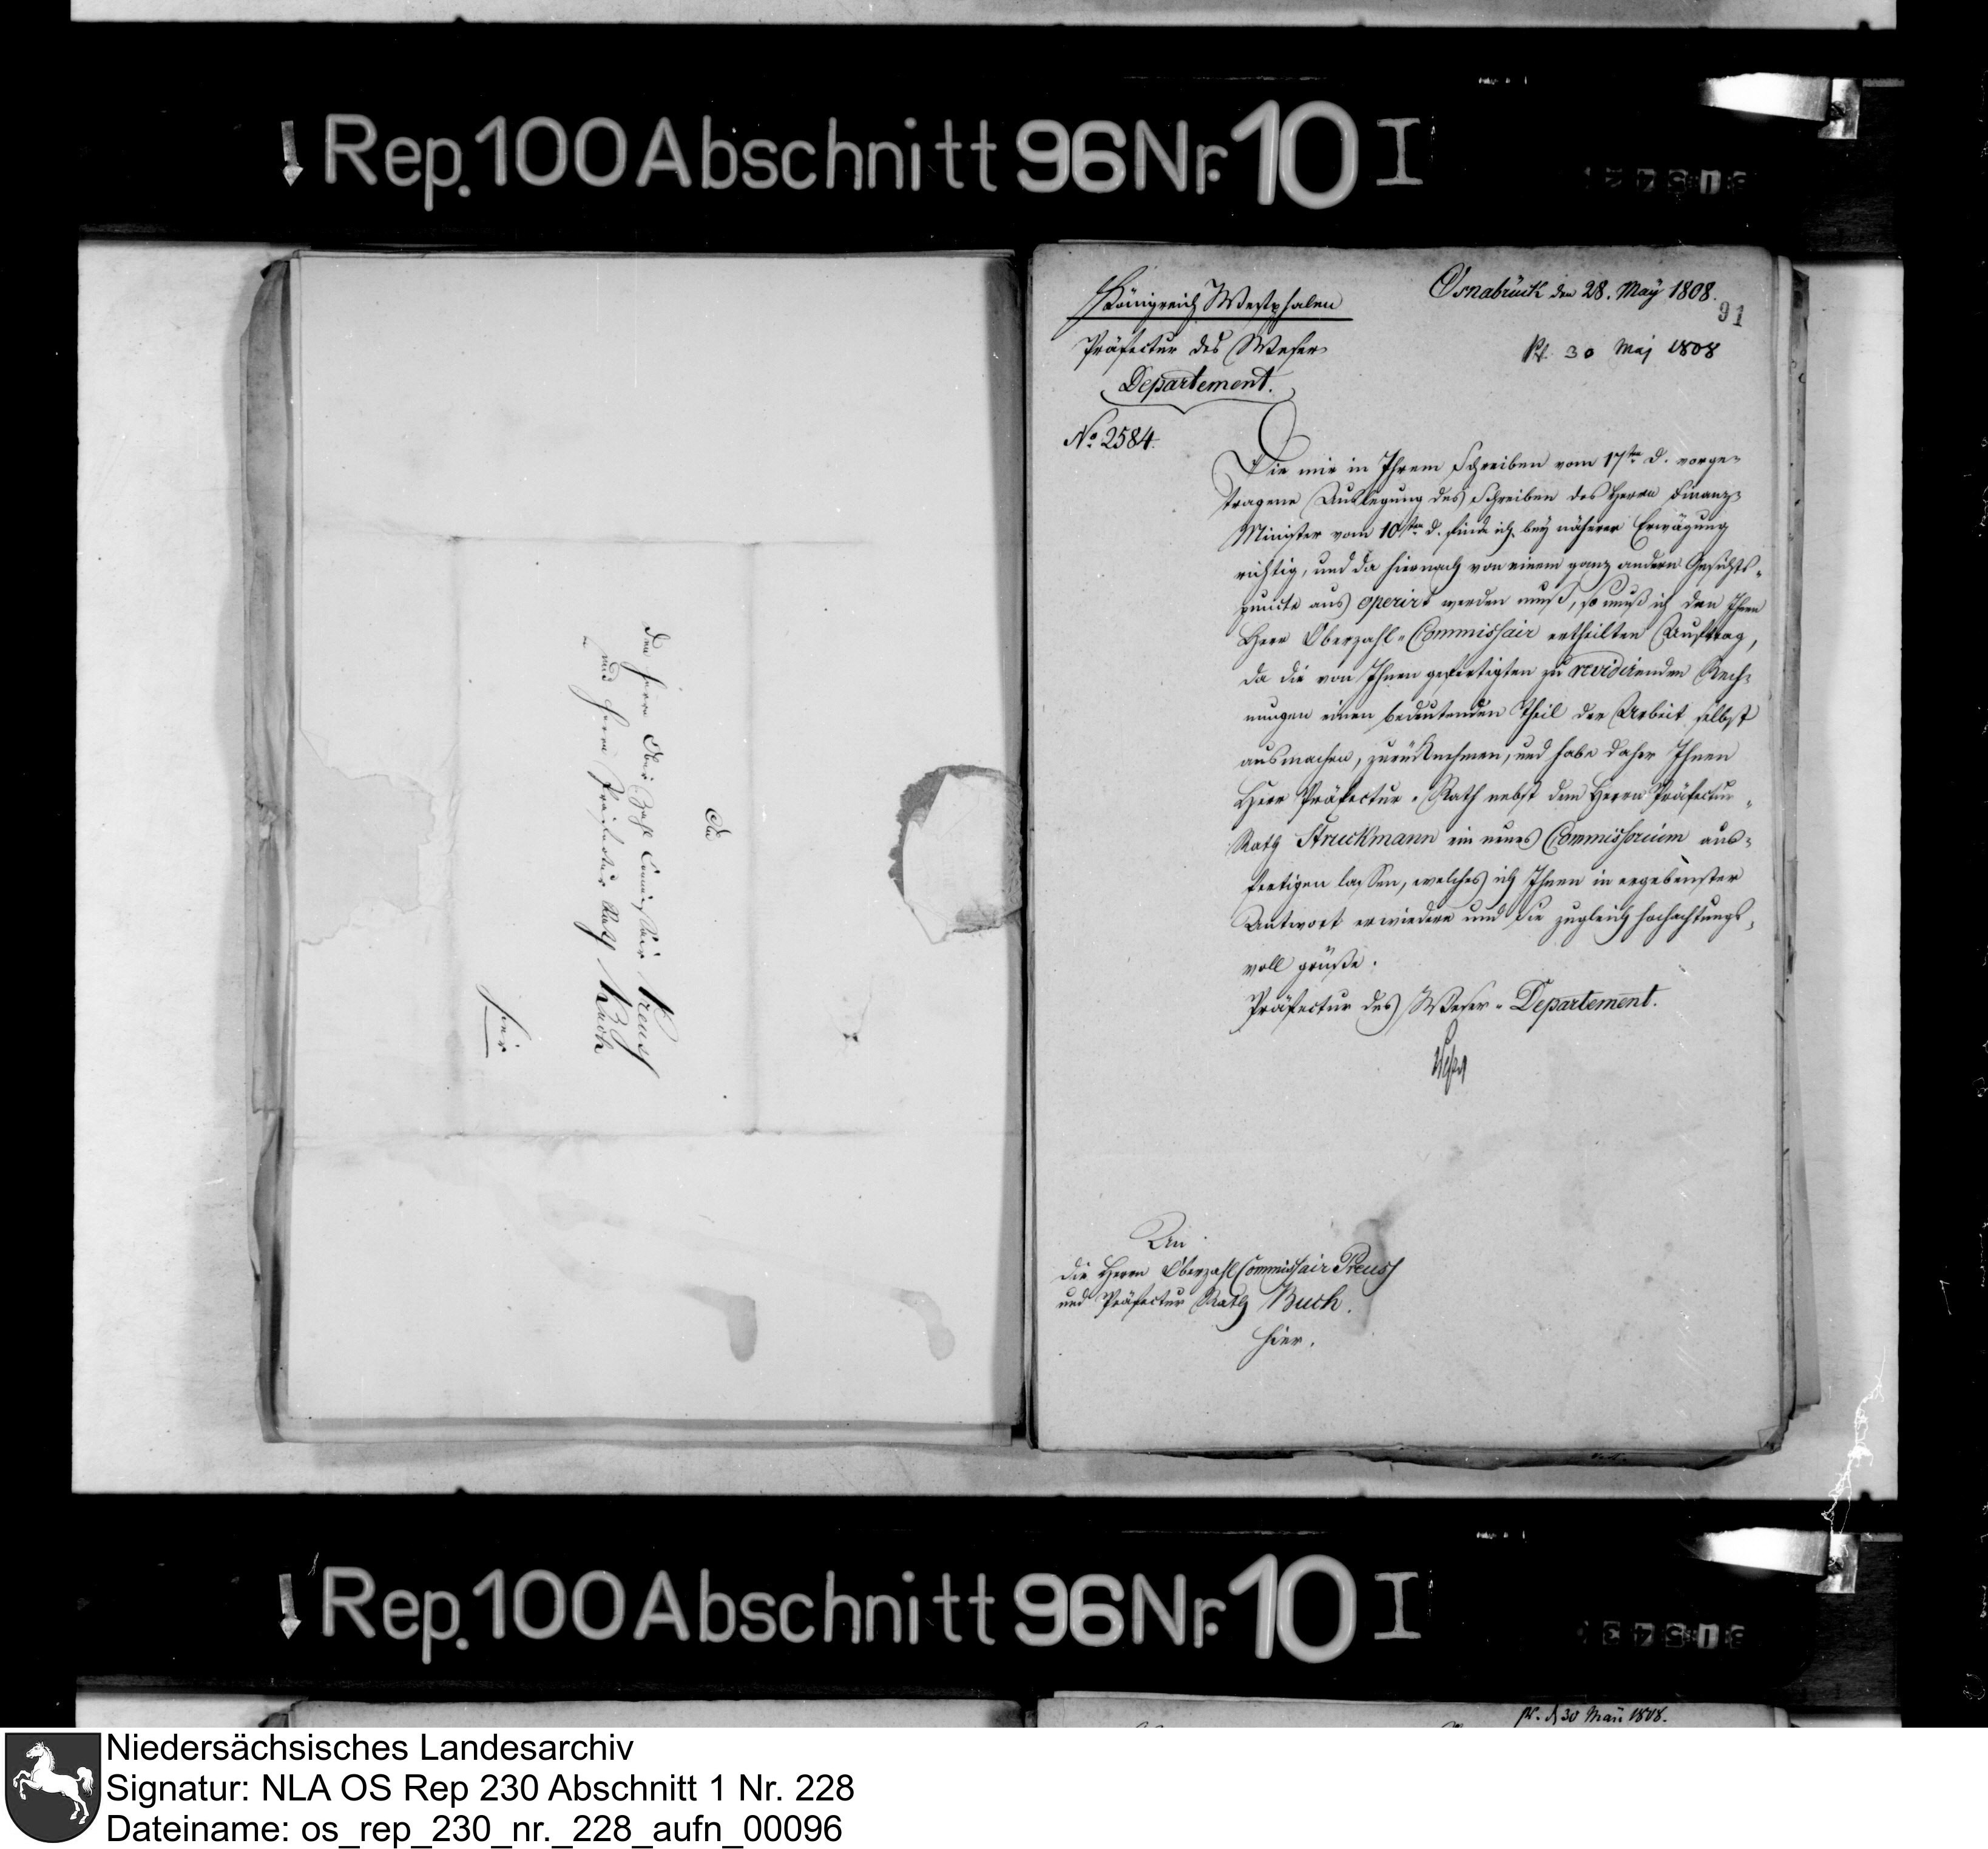 Rep. 100 Abschnitt 96 Nr. 10 I
An
den Herrn Ober Zahl Commissair Preuss
und Herrn Präfectur Rath Buch
hier
Königreich Westphalen
Präfectur des Weser
Departement.
No. 2584.
Osnabrück den 28. May 1808.
91
30 Maj 1808
Die mir in Ihrem Schreiben vom 17ten d. vorge-
tragene Auslegung des Schreiben des Herrn Finanz-
Minister vom 10ten d. finde ich bey näherer Erwägung
richtig, und da hiernach von einem ganz andern Gesichts-
puncte aus operirt werden muß, so muß ich den Ihnen
Herr Oberzahl-Commissair ertheilten Auftrag,
da die von Ihnen gefertigten zu revidirenden Rech-
nungen einen bedeutenden Theil der Arbeit selbst
ausmachen, zurücknehmen, und habe daher Ihnen
Herr Präfectur-Rath nebst dem Herrn Präfectur-
Rath Struckmann ein neues Commissorium aus-
fertigen lassen, welches ich Ihnen in ergebenster
Antwort erwiedere und Sie zugleich hochachtungs-
voll grüße.
Präfectur des Weser-Departement.
An
die Herrn Oberzahl Commissair Preuss
und Präfectur Rath Buch.
hier.
Rep. 100 Abschnitt 96 Nr. 10 I
30 Maii 1808.
Niedersächsisches Landesarchiv
Signatur: NLA OS Rep 230 Abschnitt 1 Nr. 228
Dateiname: os_rep_230_nr._228_aufn_00096